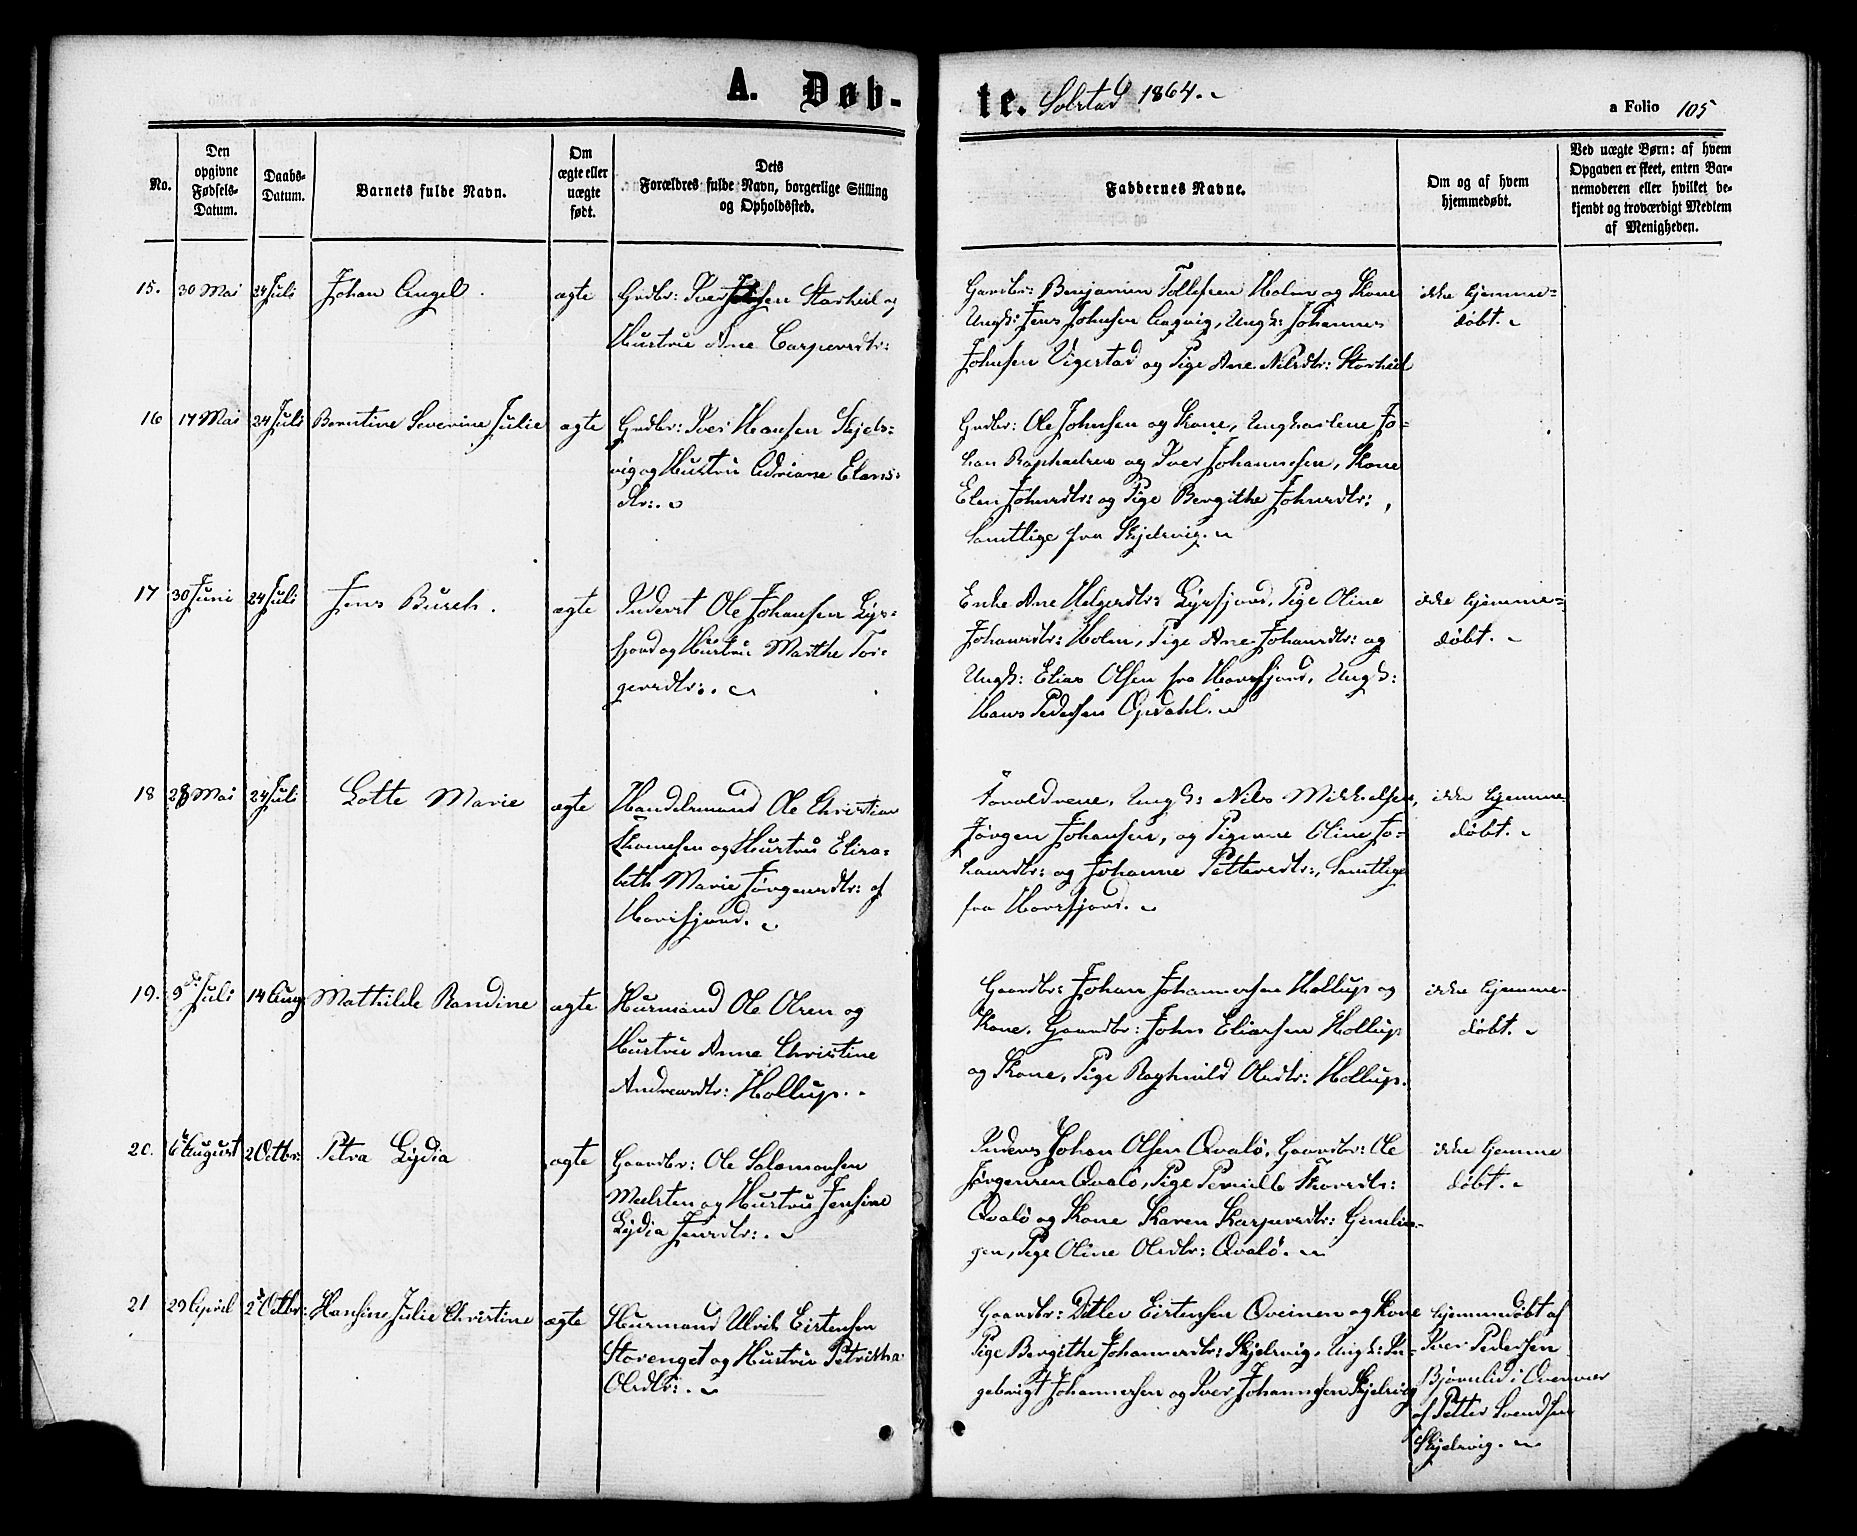 A. Døb-te. Solstad 1864.
a Folio 105
No.
Den opgivne Fødsels-Datum.
Daabs-Datum.
Barnets fulde Navn.
Om ægte eller uægte født.
Dets Forældres fulde Navn, borgerlige Stilling og Opholdssted.
Faddernes Navne.
Om og af hvem hjemmedøbt.
Ved uægte Børn: af hvem Opgaven er skeet, enten Barnemoderen eller hvilket bekjendt og troværdigt Medlem af Menigheden.
15.
30 Mai
24 Juli
Johan Angel.
ægte
Grdbr: Iver Johnsen Storheil og
Hustru Ane Caspersdtr:
Gaardbr: Benjamin Tollefsen Holm og Kone
Ungk: Jens Johnsen Aagvig, Ungk: Johannes
Johnsen Vigestad og Pige Ane Nilsdtr: Storheil
ikke hjemme-
døbt.
16
17 Mai
24 Juli
Berntine Severine Julie
ægte
Grdbr: Iver Hansen Skjels-
vig og Hustru Adriane Elans-
dtr:.
Grdbr: Ole Johnsen og Kone, Ungkarlene Jo-
han Raphaelsen og Iver Johannesen, Kone
Elen Johnsdtr: og Pige Bergithe Johnsdtr:,
Samtlige fra Skjelsvig.
17
30 Juni
24 Juli
Jens Busch.
ægte
Inderst Ole Johansen Lys-
fjord og Hustru Marthe Tor-
gersdtr:.
Enke Ane Helgesdtr: Lysfjord, Pige Oline
Johansdtr: Holm, Pige Ane Johansdtr: og
Ungk: Elias Olsen fra Horsfjord, Ungk:
Hans Pedersen Opdahl.
ikke hjemme-
døbt.
18
28 Mai
24 Juli
Lotte Marie
ægte
Handelsmand Ole Christian
Thomesen og Hustru Elisa-
beth Marie Jørgensdtr: af
Horsfjord.
Forældrene, Ungk: Nils Mikkelsen,
Jørgen Johansen, og Pigerne Oline Jo-
hansdtr: og Johanne Pettersdtr:, Samtlige
fra Horsfjord.
ikke hjemme-
døbt.
19.
9de Juli
14 Aug
Mathilde Randine
ægte
Husmand Ole Olsen og
Hustru Anne Christine
Andreasdtr: Hollup.
Gaardbr: Johan Johannesen Hollup og
Kone, Gaardbr: John Eliassen Hollup
og Kone, Pige Raghnild Olsdtr: Hollup.
ikke hjemme-
døbt.
20.
6te August
2 Octbr:
Petra Lydia
ægte
Gaardbr: Ole Salamonsen
Meelsten og Hustru Jensine
Lydia Jensdtr:.
Inderst Johan Olsen Qvalø, Gaardbr: Ole
Jørgensen Qvalø, Pige Pernille
Qvalø og Kone Karen Kaspersdtr:
Pige Oline Olsdtr: Qvalø.
ikke hjemme
døbt.
21
29 April
2 Octbr:
Hansine Julie Christine
ægte
Husmand Ulrik Eistensen
Storenget og Hustru Petritha
Olsdtr:.
Gaardbr: Ditlev Eistensen Qveinen og Kone
Pige Bergithe Johannesdtr: Skjelsvig, Ungk: In-
gebrigt Johannesen og Iver Johannesen Skjelsvig
hjemmedøbt af
Iver Pedersen
Bjørnlid i Overvær
af Petter Svendsen
Skjelsvig.